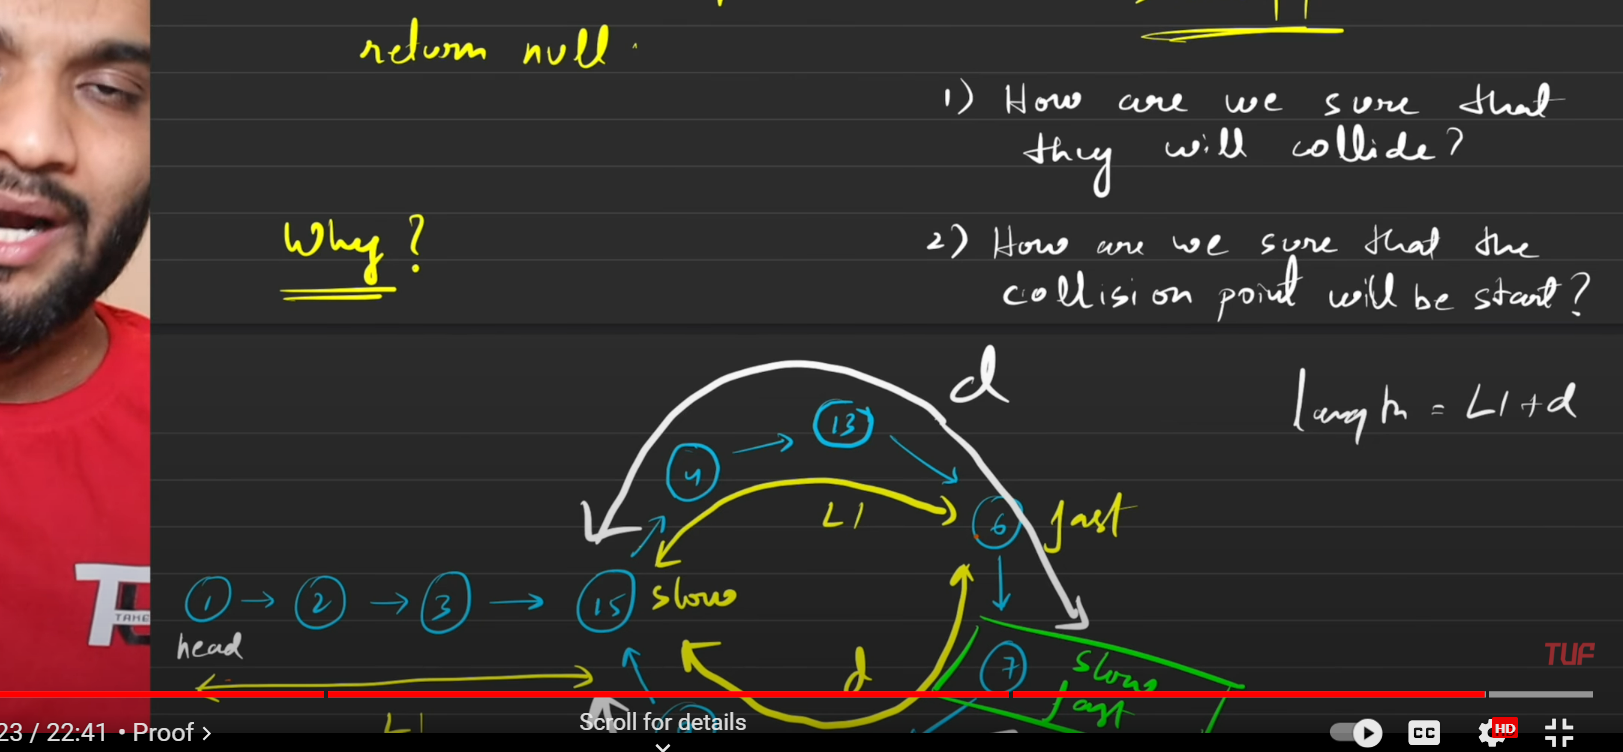 return null.
1) How are we sure that
they will collide?
Why?
2) How are we sure that the
collision point will be start?
d
length = L1+d
13
4
L1
6
fast
1
2
3
15
slow
head
7
slow
fast
d
L1
TUF
TAKE
23 / 22:41 • Proof >
Scroll for details
CC
HD